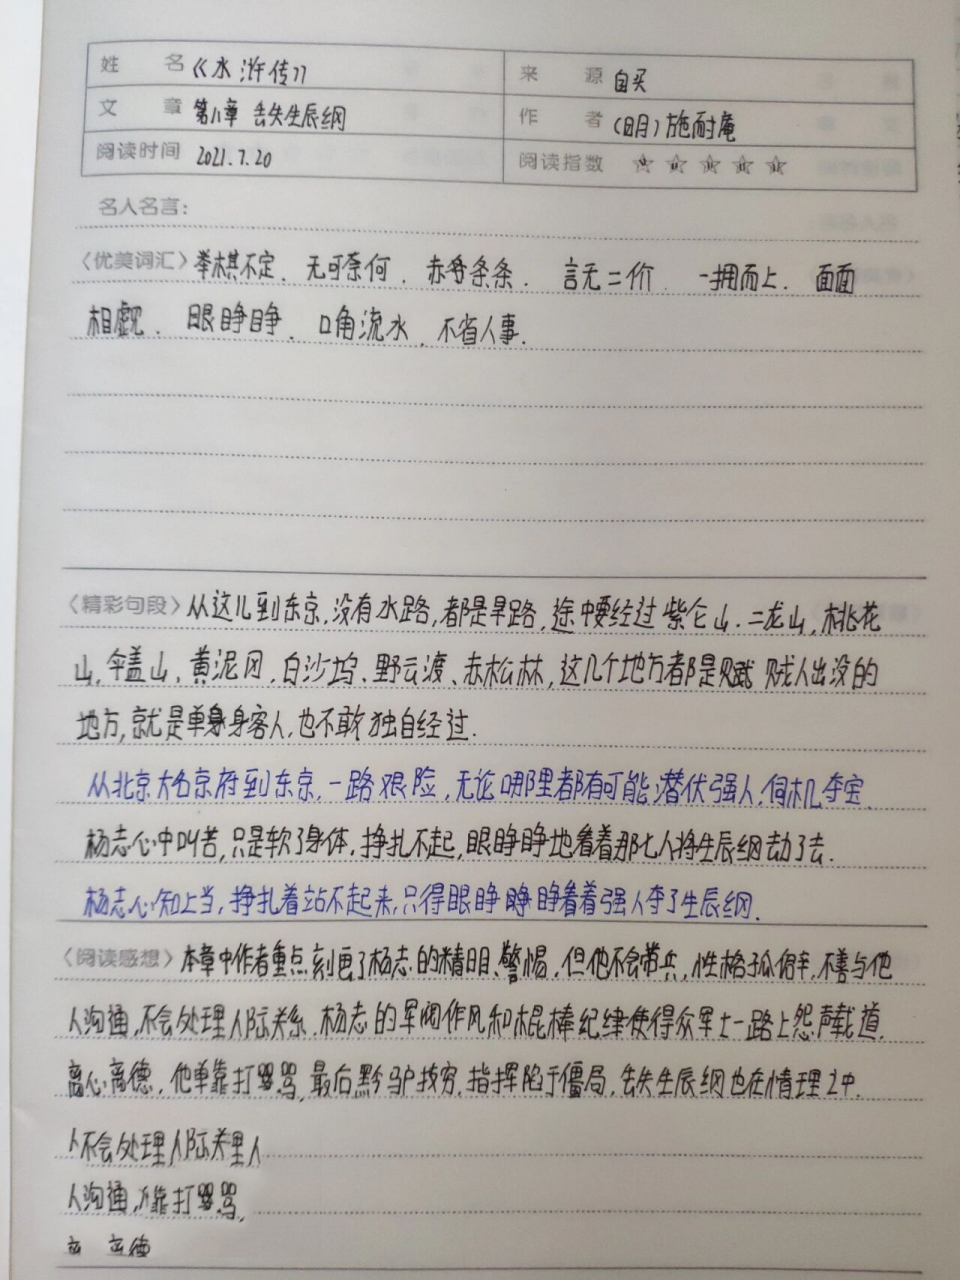 姓 名 《水浒传》 来 源 自买
文 章 第八章 丢失生辰纲 作 者 (明)施耐庵
阅读时间 2021.7.20 阅读指数 ☆☆☆☆☆
名人名言:
〈优美词汇〉举棋不定、无可奈何、赤条条、言无二价、一拥而上、面面
相觑、眼睁睁、口角流水、不省人事.
〈精彩句段〉从这儿到东京,没有水路,都是旱路,途中要经过紫仑山.二龙山,桃花
山,伞盖山,黄泥冈,白沙坞、野云渡、赤松林,这几个地方都是贼人出没的
地方,就是单身客人,也不敢独自经过.
从北京大名府到东京,一路艰险,无论哪里都有可能潜伏强人,伺机夺宝.
杨志心中叫苦,只是软了身体,挣扎不起,眼睁睁地看着那七人将生辰纲劫了去.
杨志心知上当,挣扎着站不起来,只得眼睁睁看着强人夺了生辰纲.
〈阅读感想〉本章中作者重点刻画了杨志的精明、警惕,但他不会带兵,性格孤僻,不善与他
人沟通,不会处理人际关系.杨志的军阀作风和棍棒纪律使得众军士一路上怨声载道.
离心离德,他单靠打骂,最后黔驴技穷,指挥陷于僵局,丢失生辰纲也在情理之中.
人不会处理人际关里人
人沟通,靠打骂,
离 离德